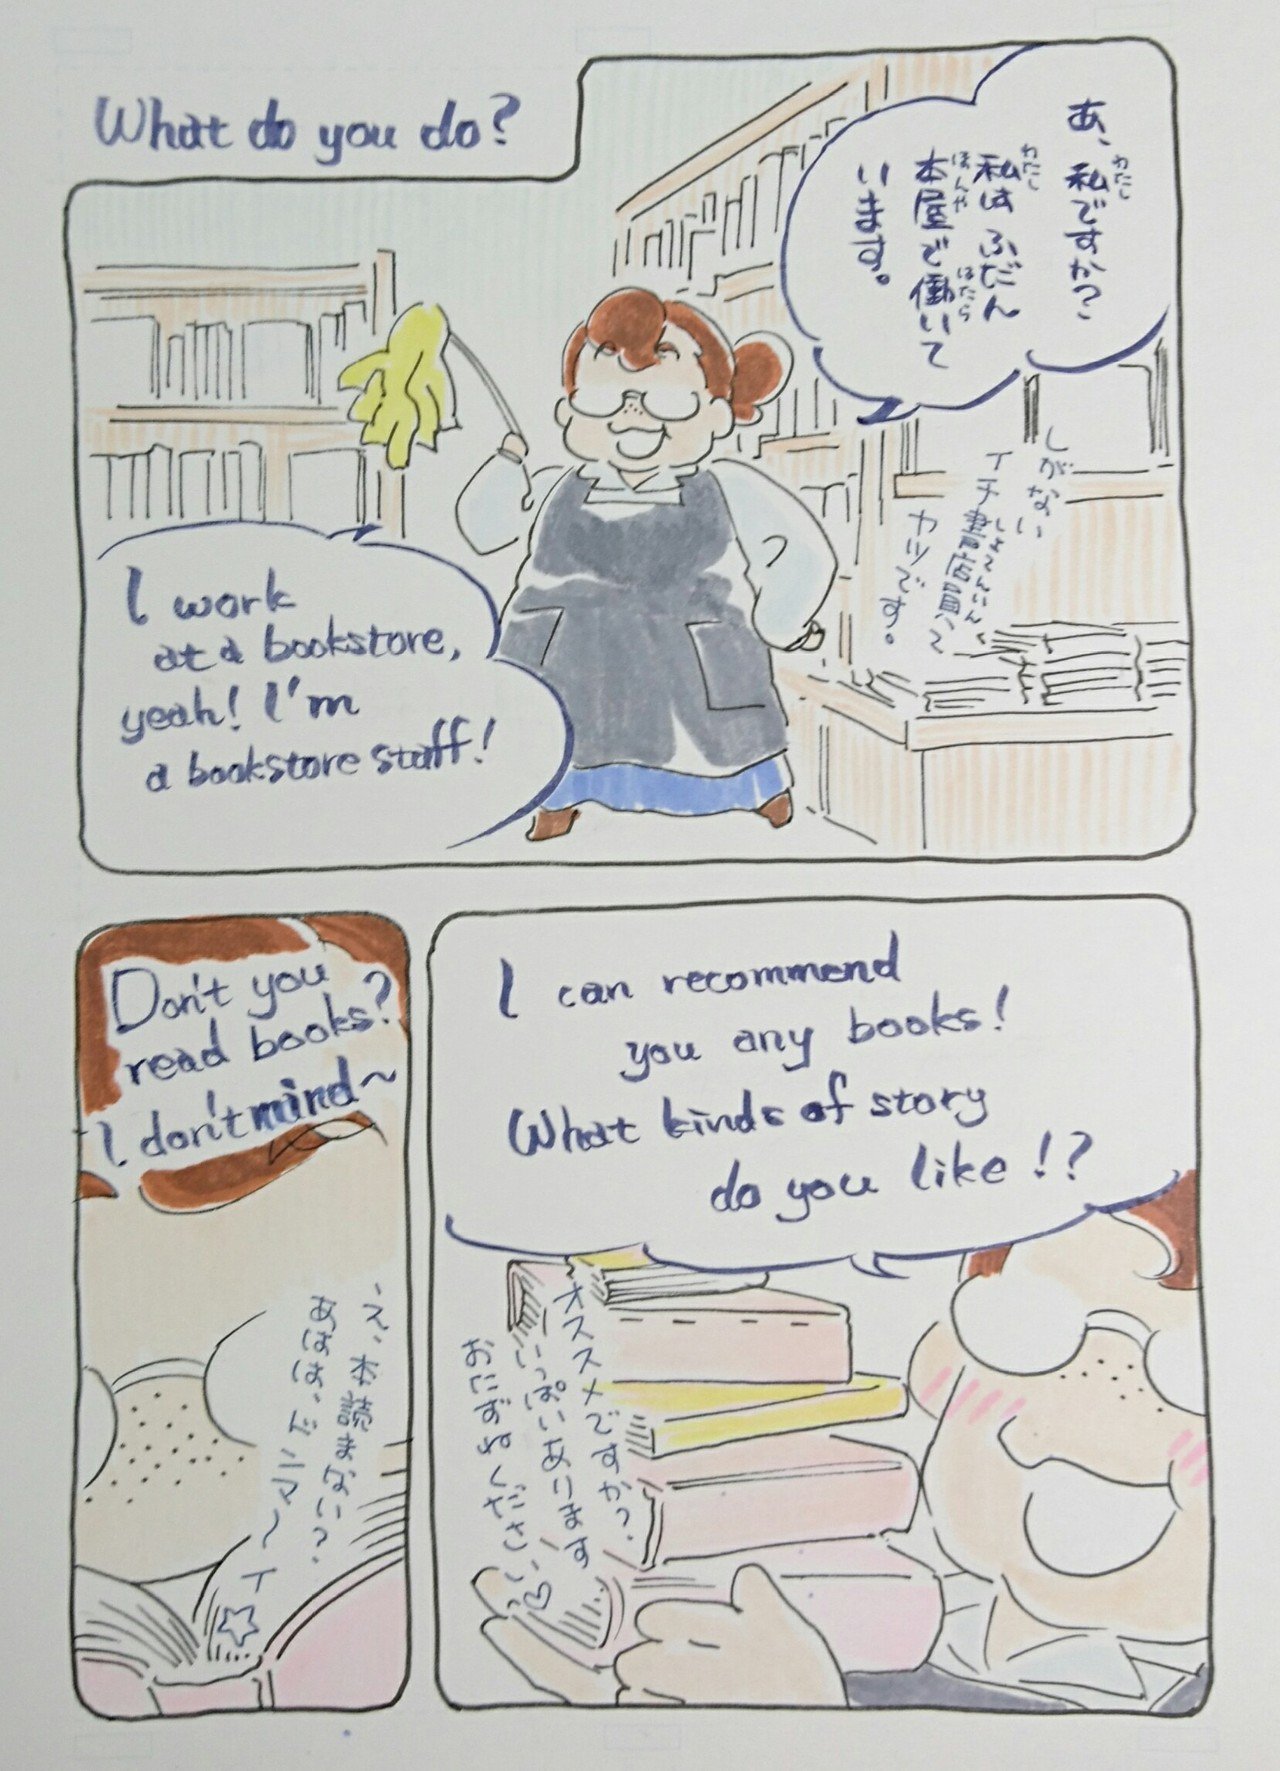 What do you do?
あ、私ですか？
わたし
私は ふだん
わたし
本屋で働いて
ほんや はたら
います。
しがない
イチ書店員って
しょてんいん
ヤツです。
I work
at a bookstore,
yeah! I'm
a bookstore staff!
I can recommend
you any books!
What kinds of story
do you like!?
オススメですか？
いっぱいあります
おたずねください♡
Don't you
read books?
I don't mind~
え、本読まない？